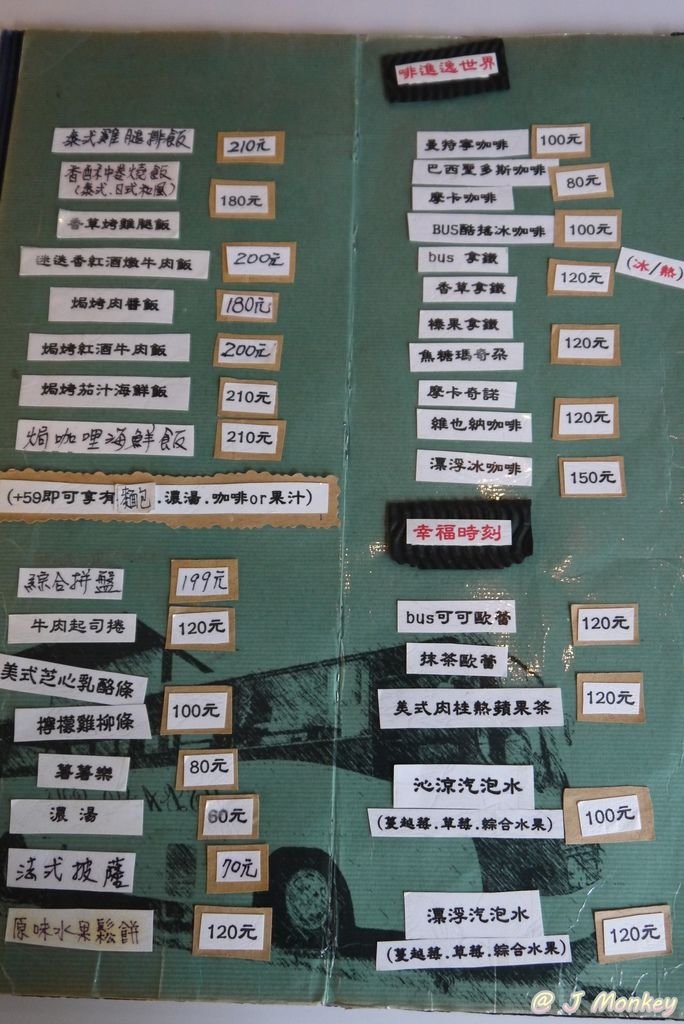 泰式雞腿排飯 210元
香酥中卷燒飯
(泰式.日式和風) 180元
香草烤雞腿飯
迷迭香紅酒燉牛肉飯 200元
焗烤肉醬飯 180元
焗烤紅酒牛肉飯 200元
焗烤茄汁海鮮飯 210元
焗咖哩海鮮飯 210元
(+59即可享有麵包.濃湯.咖啡or果汁)
綜合拼盤 199元
牛肉起司捲 120元
美式芝心乳酪條
檸檬雞柳條 100元
薯薯樂 80元
濃湯 60元
法式披薩 70元
原味水果鬆餅 120元
啡進逸世界
曼特寧咖啡 100元
巴西聖多斯咖啡 80元
摩卡咖啡
BUS酷搖冰咖啡 100元
bus 拿鐵
(冰/熱)
香草拿鐵 120元
榛果拿鐵
焦糖瑪奇朵 120元
摩卡奇諾
維也納咖啡 120元
漂浮冰咖啡 150元
幸福時刻
bus可可歐蕾 120元
抹茶歐蕾
美式肉桂熱蘋果茶 120元
沁涼汽泡水
(蔓越莓.草莓.綜合水果) 100元
漂浮汽泡水
(蔓越莓.草莓.綜合水果) 120元
@ J Monkey